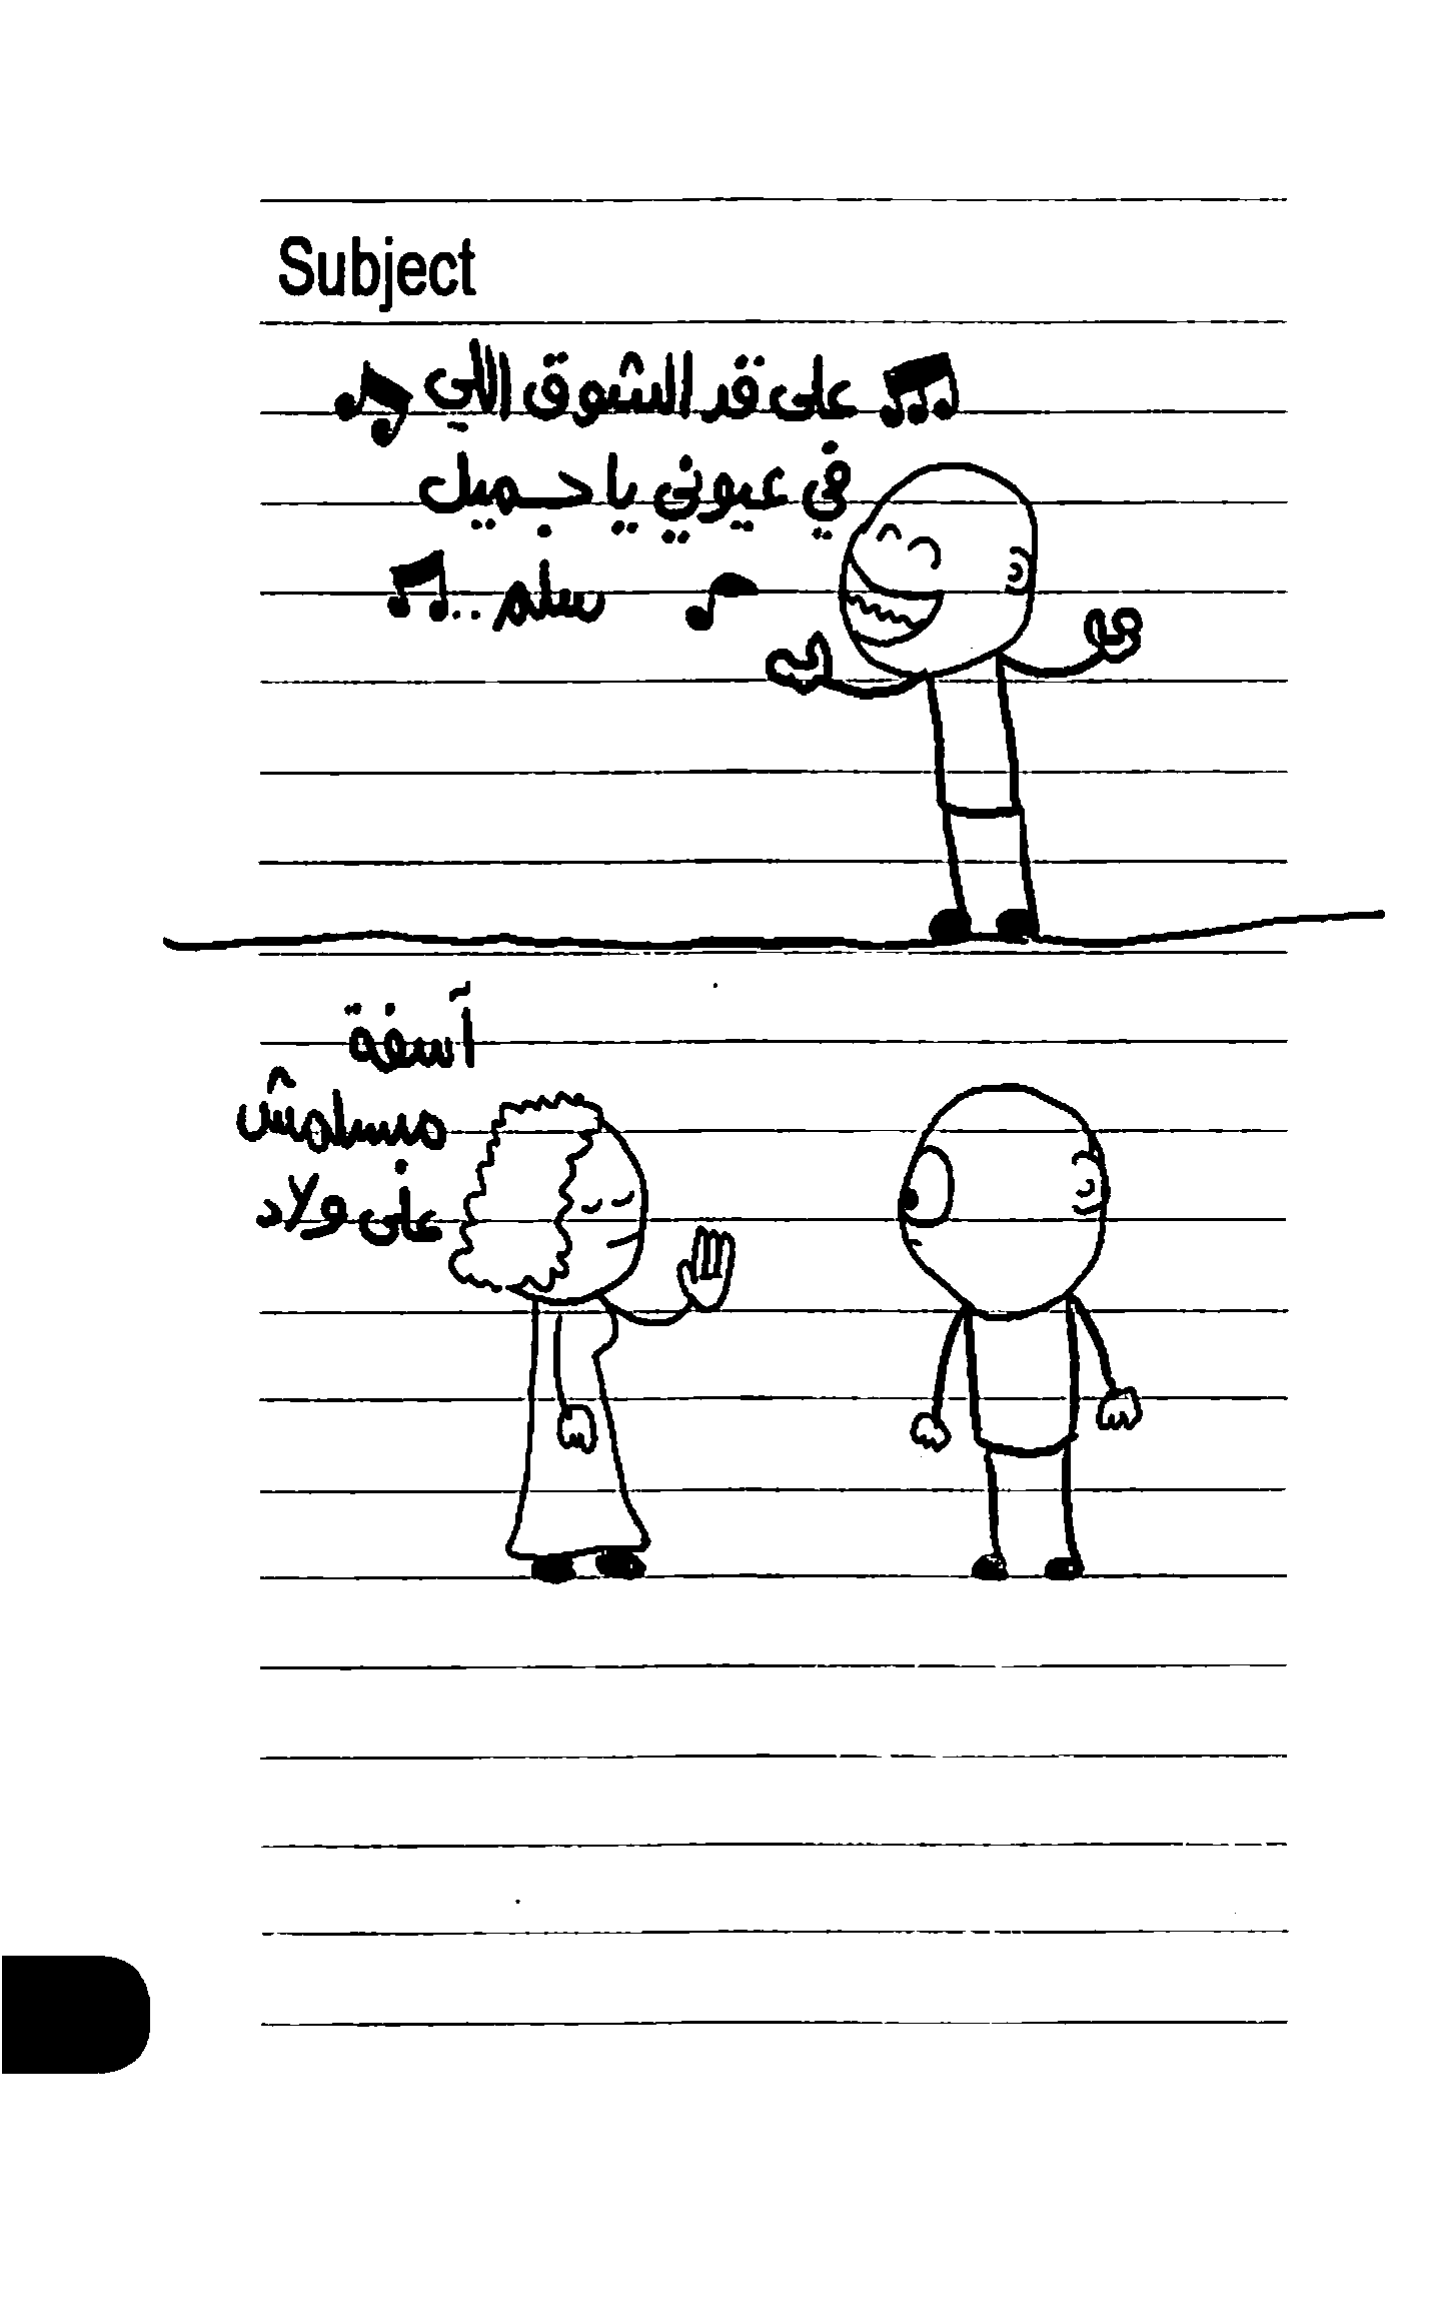 Subject
على قد الشوق اللي
في عيوني يا جميل
سلم..
آسفة
مبسلمش
على ولاد